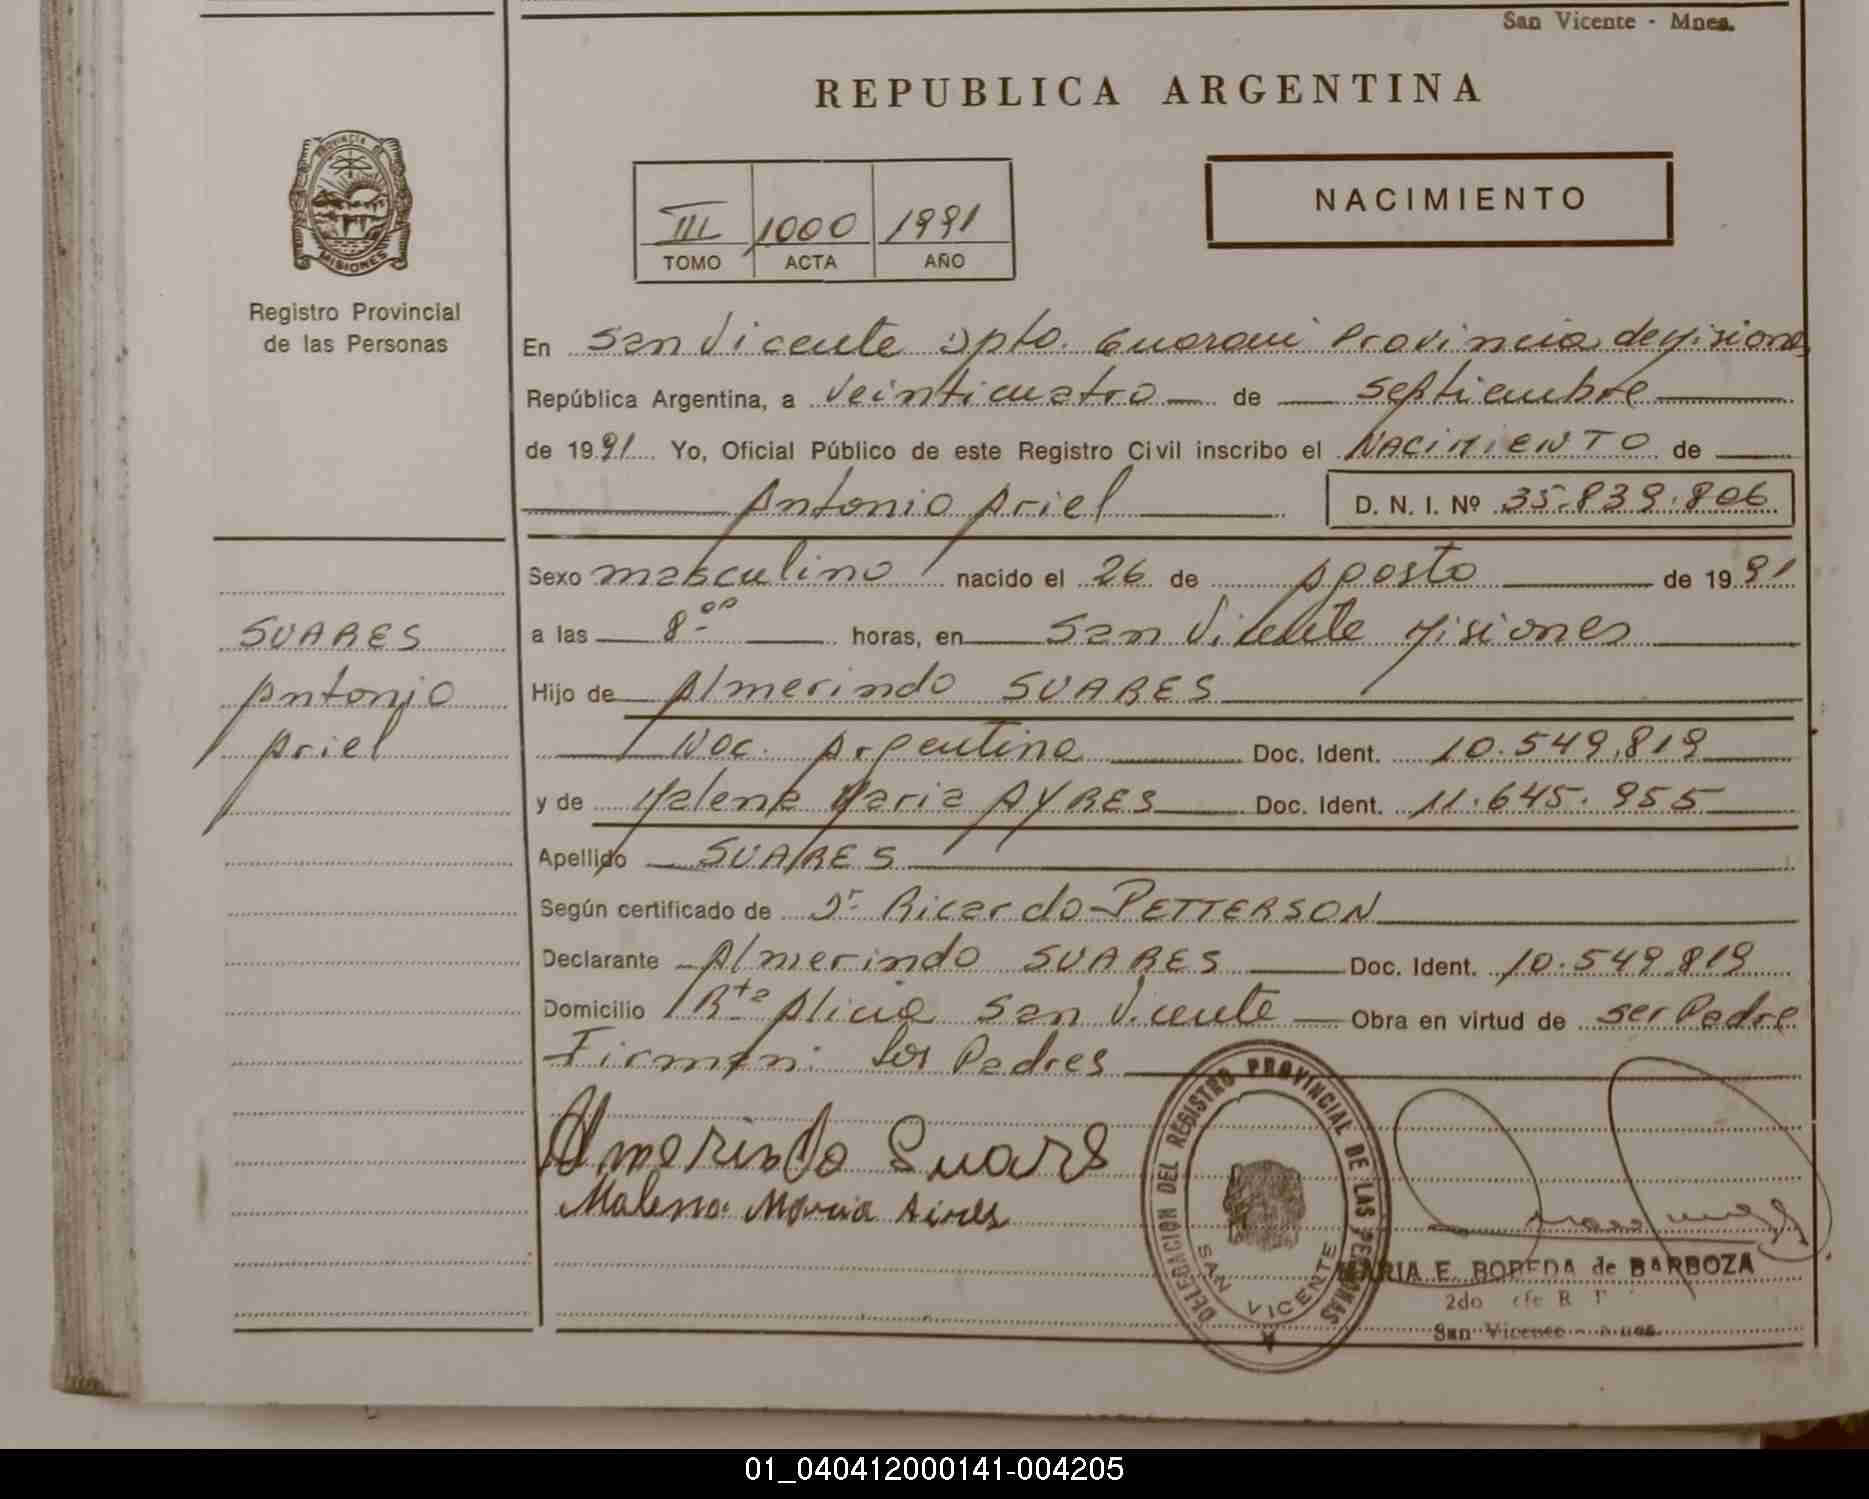 San Vicente - Mnes.
REPUBLICA ARGENTINA
PROVINCIA DE
MISIONES
Registro Provincial
de las Personas
III 1000 1991
TOMO ACTA AÑO
NACIMIENTO
En San Vicente Dpto. Guarani Provincia de Misiones
República Argentina, a veinticuatro de septiembre
de 1991 Yo, Oficial Público de este Registro Civil inscribo el NACIMIENTO de
Antonio Ariel D. N. I. Nº 35.839.806
Sexo masculino nacido el 26 de Agosto de 1991
a las 8 00 horas, en San Vicente Misiones
Hijo de Almerindo SUARES
Nac. Argentina Doc. Ident. 10.549.819
y de Malena Maria AYRES Doc. Ident. 11.645.955
Apellido SUARES
Según certificado de Dr. Ricardo PETTERSON
Declarante Almerindo SUARES Doc. Ident. 10.549.819
Domicilio Rta Alicia San Vicente Obra en virtud de ser Padre
Firman: los Padres
SUARES
Antonio
Ariel
Almerindo Suares
Malena Maria Aires
DELEGACION DEL REGISTRO PROVINCIAL DE LAS PERSONAS
SAN VICENTE
MARIA E. BOREDA de BARBOZA
2do
San Vicente - Mnes.
01_040412000141-004205